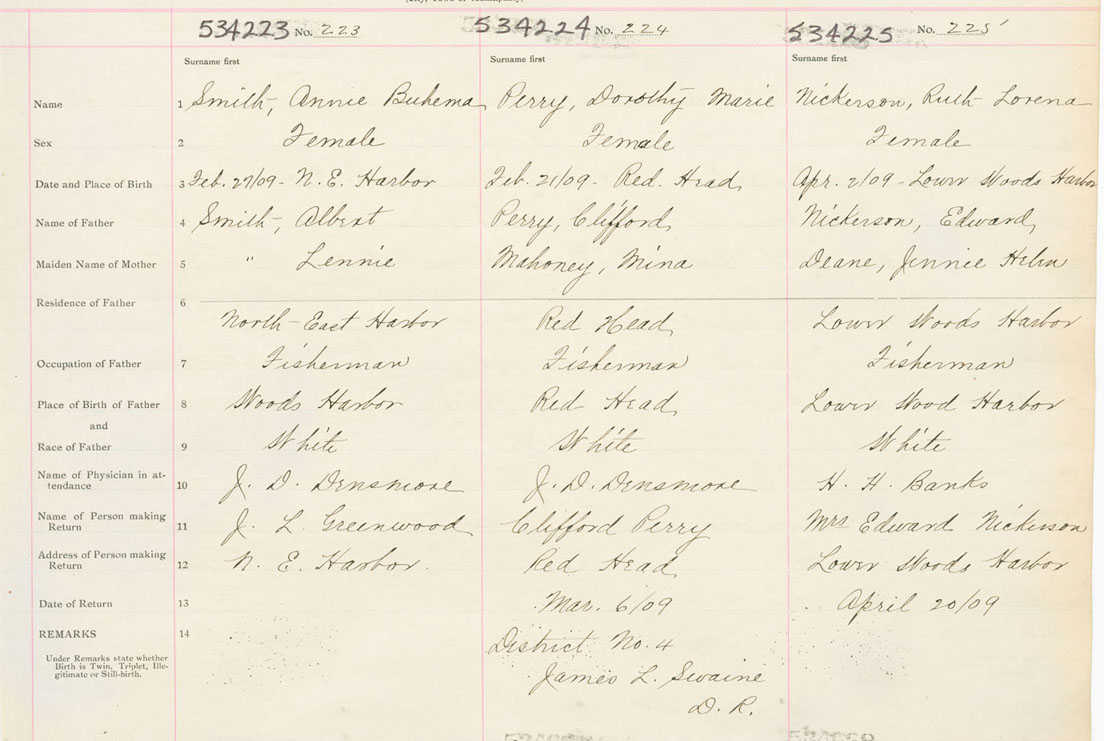 534223 No. 223 534224 No. 224 534225 No. 225
Surname first Surname first Surname first
Name 1 Smith, Annie Buhema Perry, Dorothy Marie Nickerson, Ruth Lorena
Sex 2 Female Female Female
Date and Place of Birth 3 Feb. 27/09 - N. E. Harbor Feb. 21/09 - Red. Head Apr. 2/09 - Lower Woods Harbor
Name of Father 4 Smith, Albert Perry, Clifford Nickerson, Edward
Maiden Name of Mother 5 " Lennie Mahoney, Mina Deane, Jennie Helen
Residence of Father 6
North-East Harbor Red Head Lower Woods Harbor
Occupation of Father 7 Fisherman Fisherman Fisherman
Place of Birth of Father 8 Woods Harbor Red Head Lower Wood Harbor
and
Race of Father 9 White White White
Name of Physician in at-
tendance 10 J. D. Densmore J. D. Densmore H. H. Banks
Name of Person making
Return 11 J. L. Greenwood Clifford Perry Mrs Edward Nickerson
Address of Person making
Return 12 N. E. Harbor. Red Head Lower Woods Harbor
Date of Return 13 Mar. 6/09 April 20/09
REMARKS 14 District No. 4
Under Remarks state whether
Birth is Twin, Triplet, Ille-
gitimate or Still-birth.
James L. Swaine
D. R.